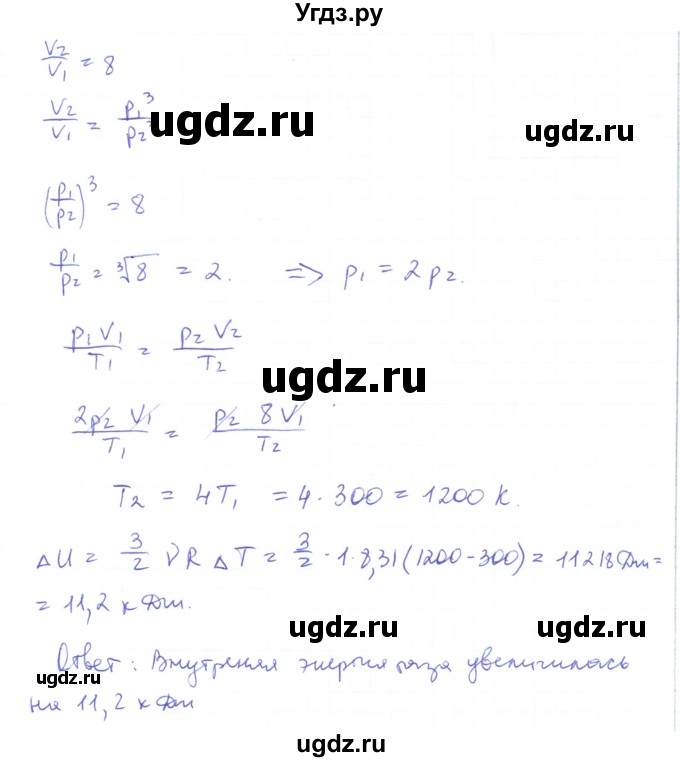 Угдз.ру
V2/V1 = 8
V2/V1 = p1³/p2³
ugdz.ru
(p1/p2)³ = 8
p1/p2 = ³√8 = 2. => p1 = 2p2.
p1V1/T1 = p2V2/T2
ugdz.ru
2p2 V1/T1 = p2 8V1/T2
T2 = 4T1 = 4·300 = 1200 К.
ΔU = 3/2 νRΔT = 3/2 · 1·8,31(1200-300) = 11218 Дж =
= 11,2 кДж.
ugdz.ru
Ответ: Внутреняя энергия газа увеличилась
ugdz.ru
на 11,2 кДж
ugdz.ru
ugdz.ru